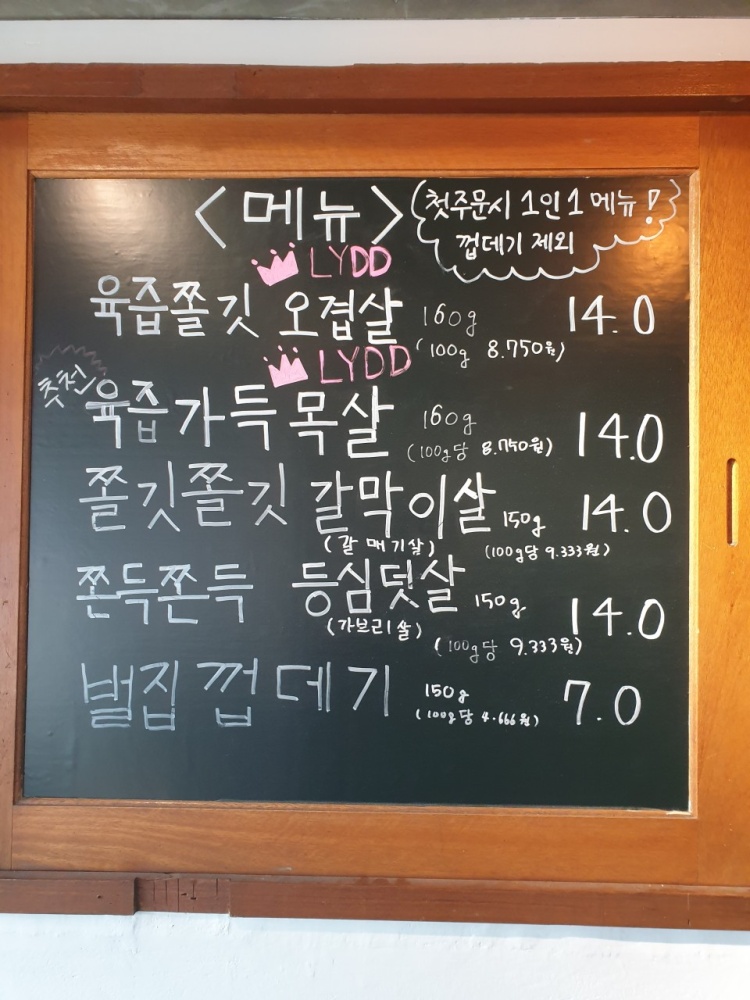 <메뉴>
첫주문시 1인 1 메뉴!
껍데기 제외
LYDD
육즙쫄깃 오겹살 160g 14.0
(100g 8.750원)
LYDD
추천
육즙가득 목살 160g 14.0
(100g당 8.750원)
쫄깃쫄깃 갈막이살 150g 14.0
(갈매기살) (100g당 9.333원)
쫀득쫀득 등심덧살 150g 14.0
(가브리살) (100g당 9.333원)
벌집 껍데기 150g 7.0
(100g당 4.666원)